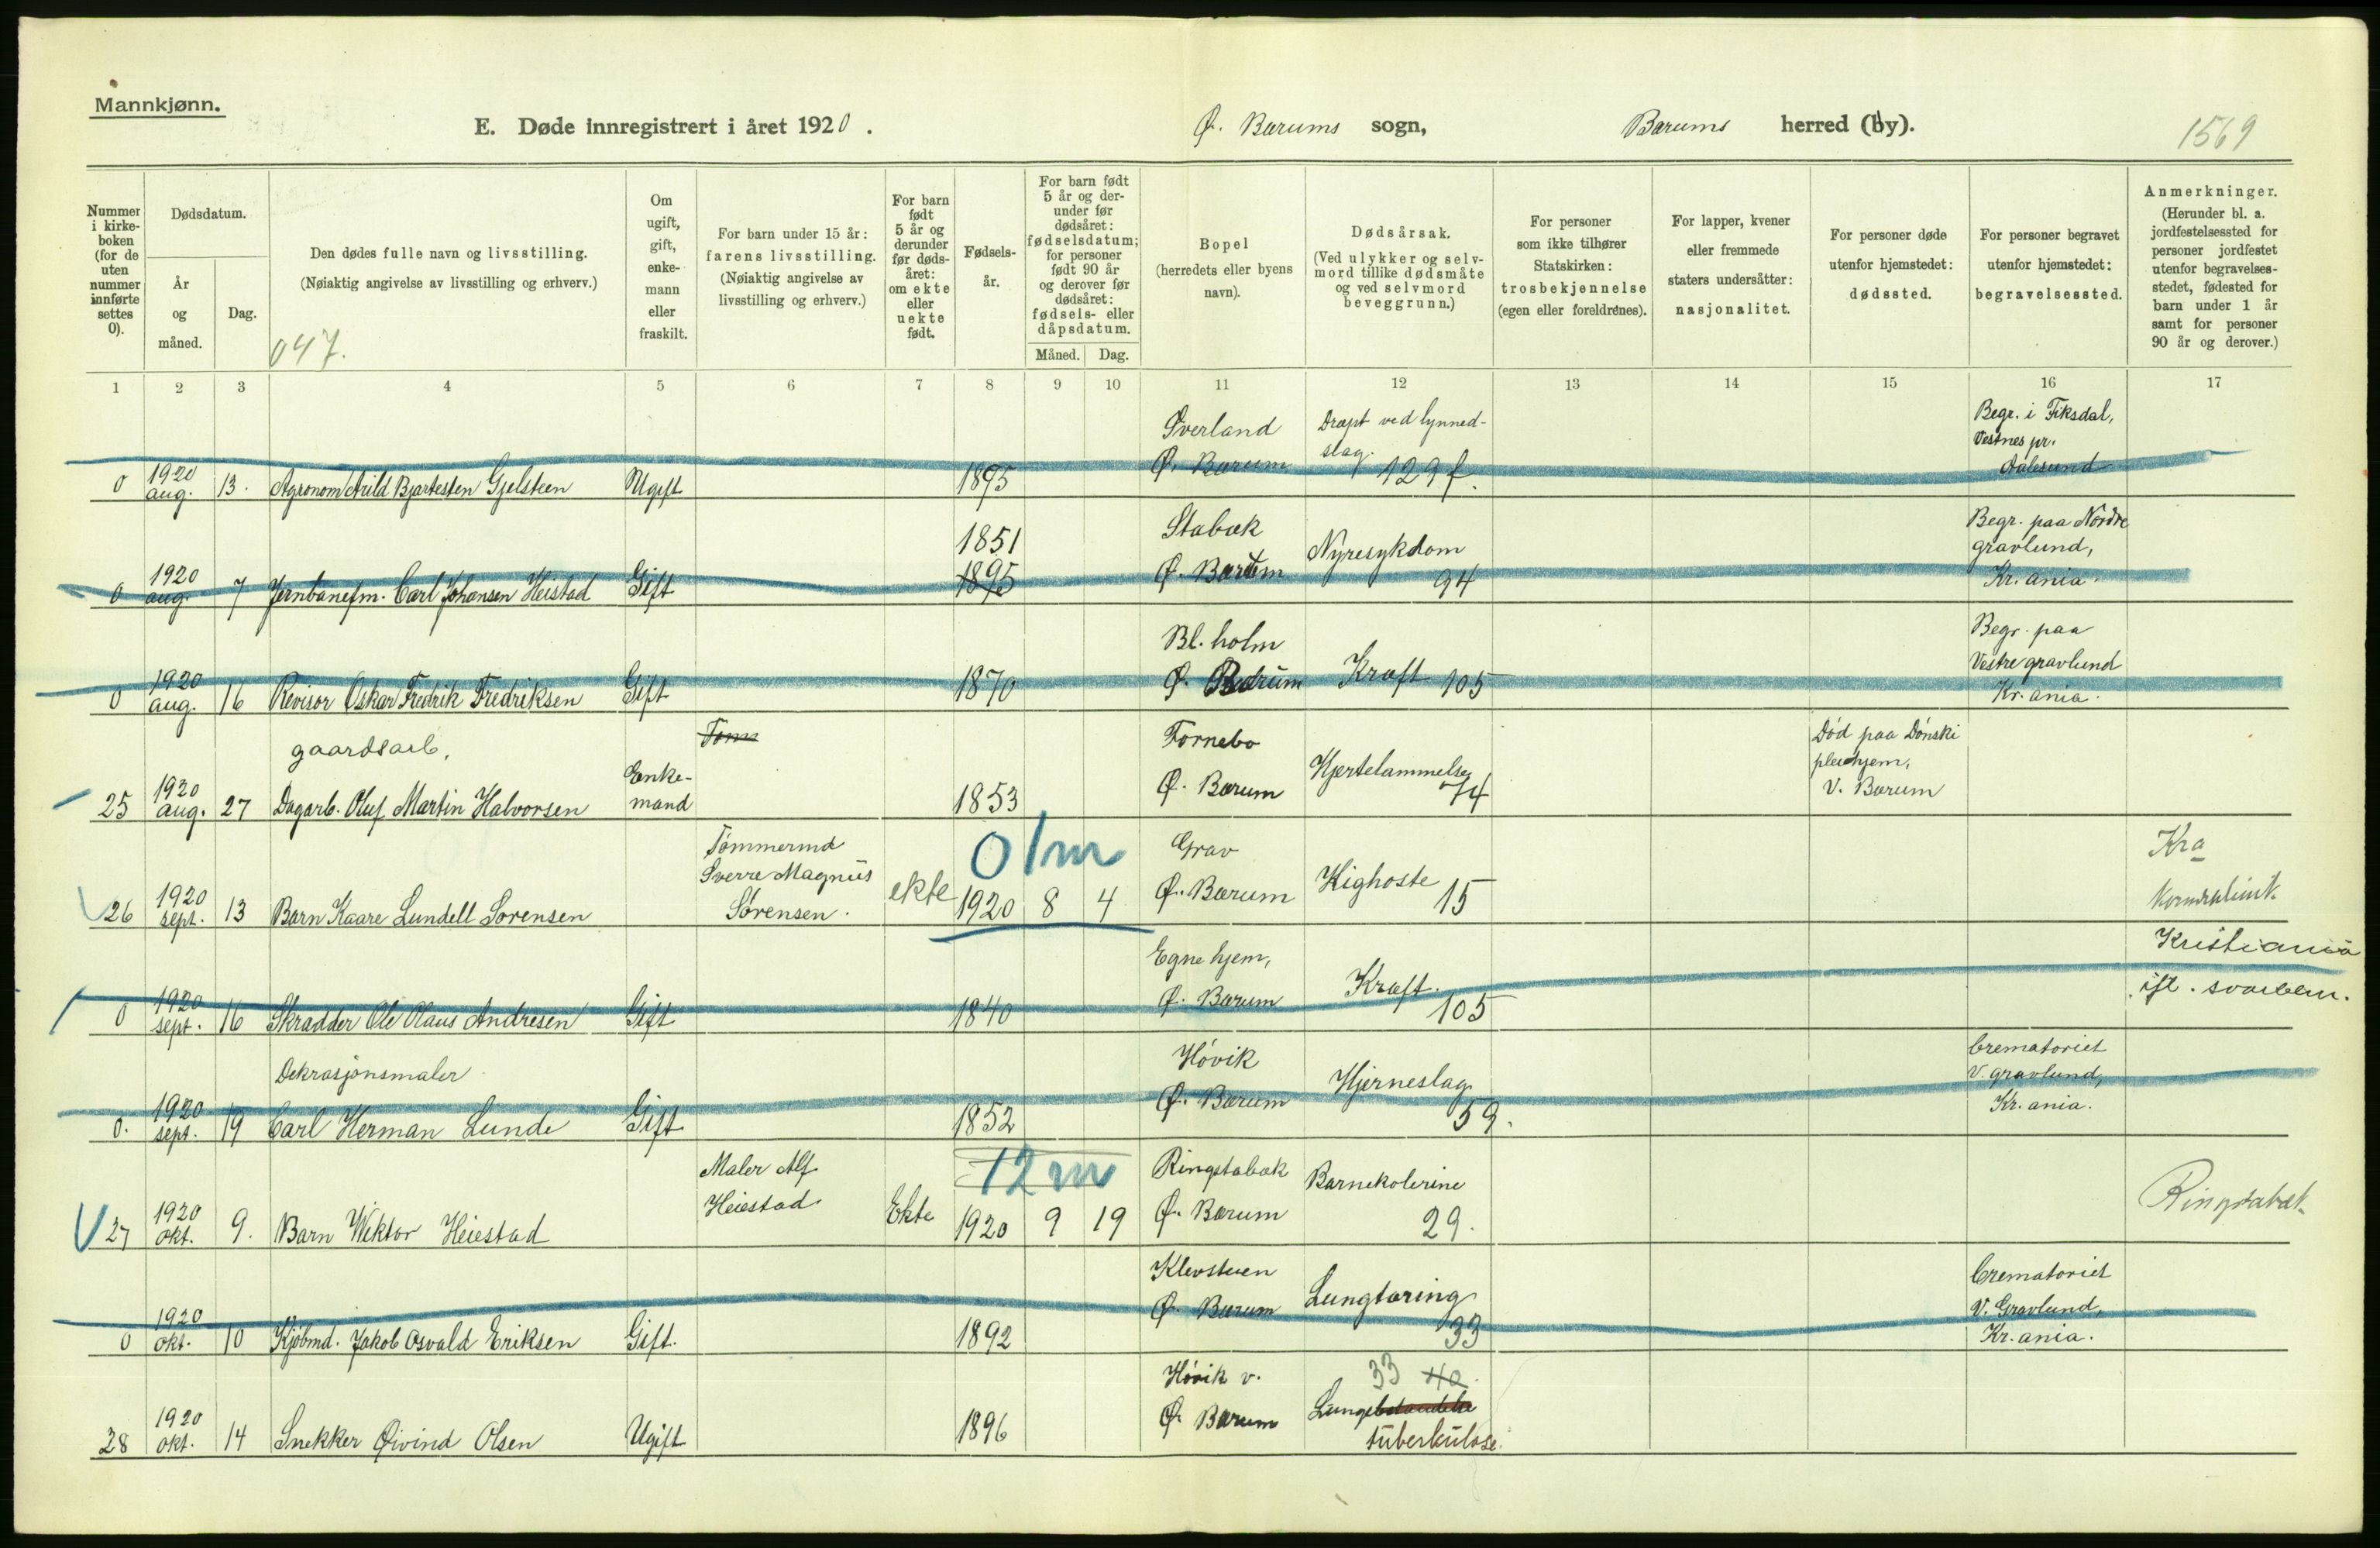 Mannkjønn.
E. Døde innregistrert i året 1920.
Ø. Bærums sogn,
Bærums herred (by).
1569
Nummer i kirkeboken (for de uten nummer innførte settes 0).
Dødsdatum.
År og måned.
Dag.
Den dødes fulle navn og livsstilling.
(Nøiaktig angivelse av livsstilling og erhverv.)
047.
Om ugift, gift, enkemann eller fraskilt.
For barn under 15 år: farens livsstilling.
(Nøiaktig angivelse av livsstilling og erhverv.)
For barn født 5 år og derunder før dødsåret: om ekte eller uekte født.
Fødselsår.
For barn født 5 år og derunder før dødsåret: fødselsdatum; for personer født 90 år og derover før dødsåret: fødsels- eller dåpsdatum.
Måned. Dag.
Bopel
(herredets eller byens navn).
Dødsårsak.
(Ved ulykker og selvmord tillike dødsmåte og ved selvmord beveggrunn.)
For personer som ikke tilhører Statskirken: trosbekjennelse (egen eller foreldrenes).
For lapper, kvener eller fremmede staters undersåtter: nasjonalitet.
For personer døde utenfor hjemstedet: dødssted.
For personer begravet utenfor hjemstedet: begravelsessted.
Anmerkninger.
(Herunder bl. a. jordfestelsessted for personer jordfestet utenfor begravelsesstedet, fødested for barn under 1 år samt for personer 90 år og derover.)
1 2 3 4 5 6 7 8 9 10 11 12 13 14 15 16 17
0 1920 aug. 13. Agronom Arild Bjartesten Gjelsteen Ugift 1895 Øverland Ø. Bærum Dræpt ved lynnedslag. 129 f. Begr. i Fiksdal, Vestnes pr. Aalesund
0 1920 aug. 7 Jernbanefm. Carl Johansen Heistad Gift 1851 1895 Stabæk Ø. Bærum Nyresykdom 94 Begr. paa Nordre gravlund, Kr.ania.
0 1920 aug. 16 Revisor Oskar Fredrik Fredriksen Gift 1870 Bl. holm Ø. Bærum Kræft 105 Begr. paa Vestre gravlund Kr.ania.
25 1920 aug. 27 gaardsarb. Dagarb. Oluf Martin Halvorsen Enkemand Tøm 1853 Fornebo Ø. Bærum Hjertelammelse 74 Død paa Dønski pleiehjem, V. Bærum
26 1920 sept. 13 Barn Kaare Lundell Sørensen Tømmermd Sverre Magnus Sørensen. ekte 0/m 1920 8 4 Grav Ø. Bærum Kighoste 15 Kra
0 1920 sept. 16 Skrædder Ole Olaus Andresen Gift 1840 Egne hjem, Ø. Bærum Kræft. 105 Kristiania ifl.
0. 1920 sept. 19 Dekrasjonsmaler Carl Herman Lunde Gift 1852 Høvik Ø. Bærum Hjerneslag 59. Crematoriet V. gravlund, Kr.ania.
27 1920 okt. 9. Barn Wiktor Heiestad Maler Alf Heiestad Ekte 12 m 1920 9 19 Ringstabæk Ø. Bærum Barnekolerine 29. Ringstabæk
0 1920 okt. 10 Kjøbmd. Jakob Osvald Eriksen Gift. 1892 Klevstuen Ø. Bærum Lungtæring 33 Crematoriet V. Gravlund, Kr.ania.
28 1920 okt. 14 Snekker Øivind Olsen Ugift 1896 Høvik v. Ø. Bærum 33 Lunge tuberkulose.